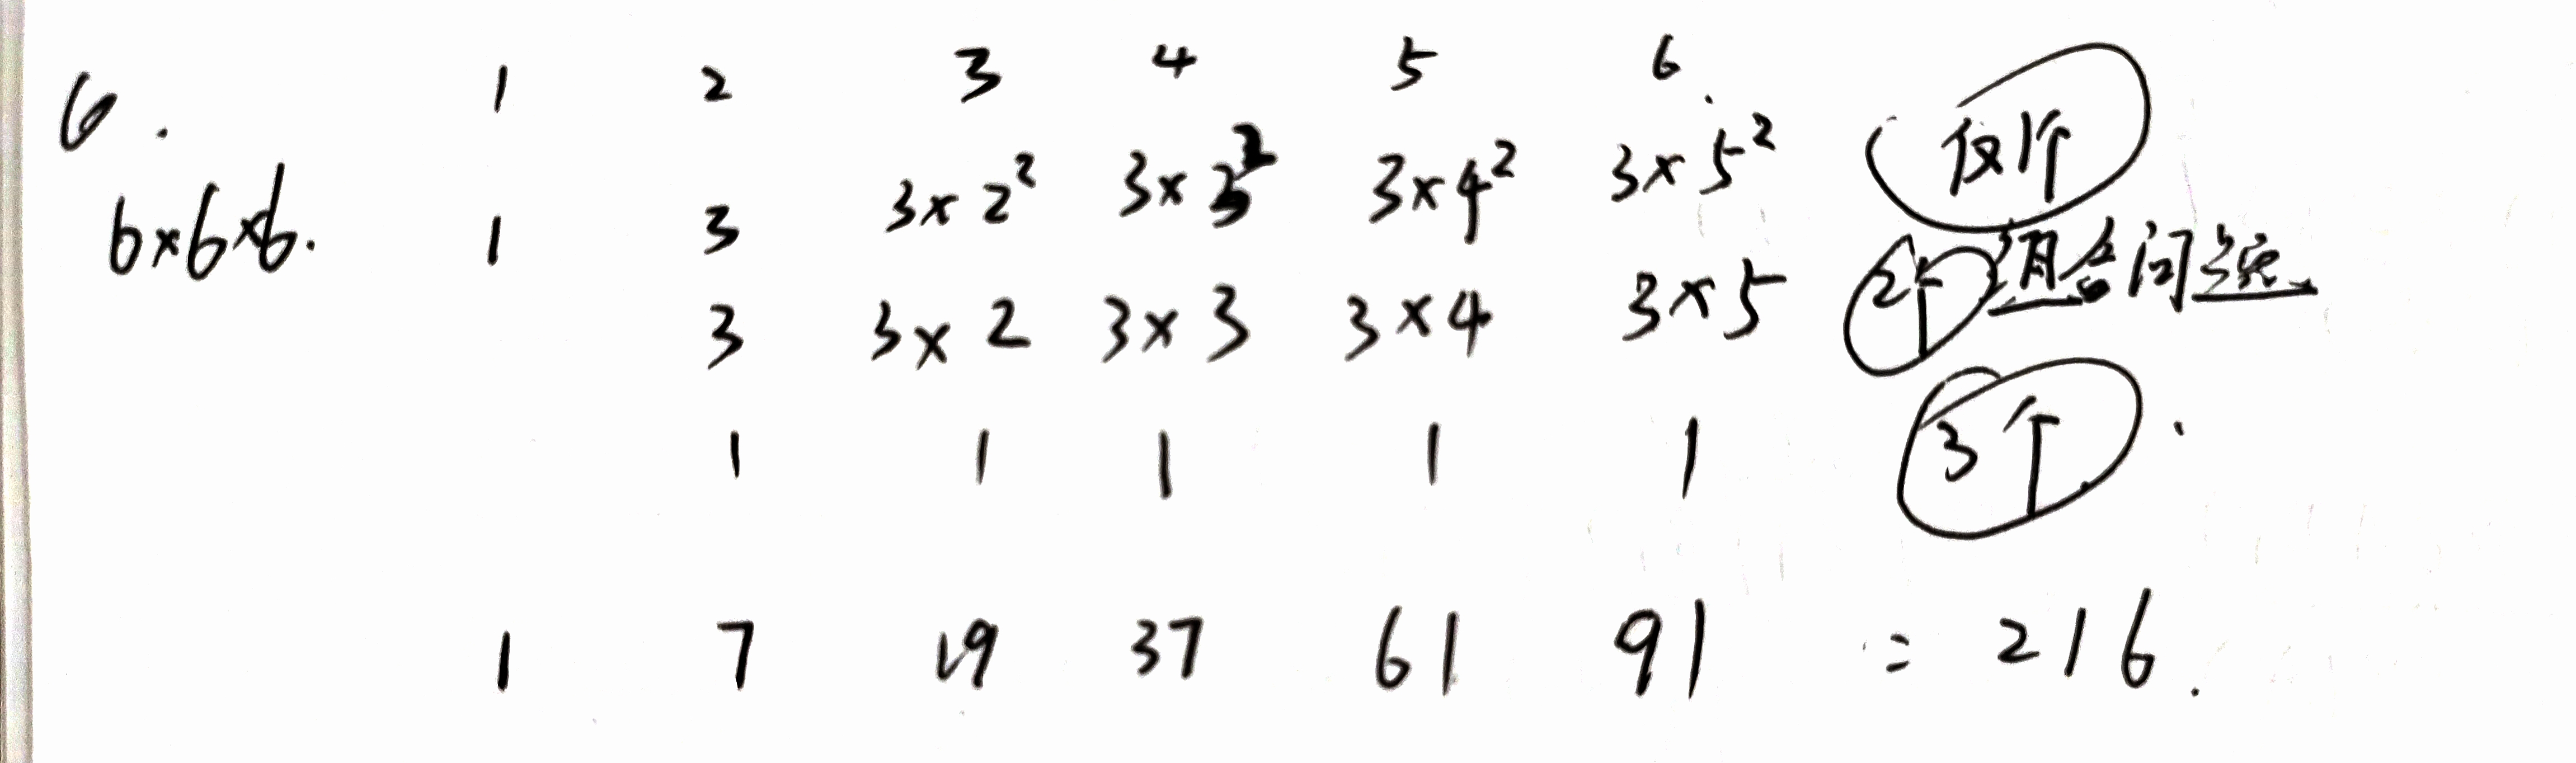 6. 1 2 3 4 5 6.
6×6×6. 1 3 3×2² 3×3² 3×4² 3×5² 仅1个
3 3×2 3×3 3×4 3×5 2个 组合问题
1 1 1 1 1 3个.
1 7 19 37 61 91 = 216.